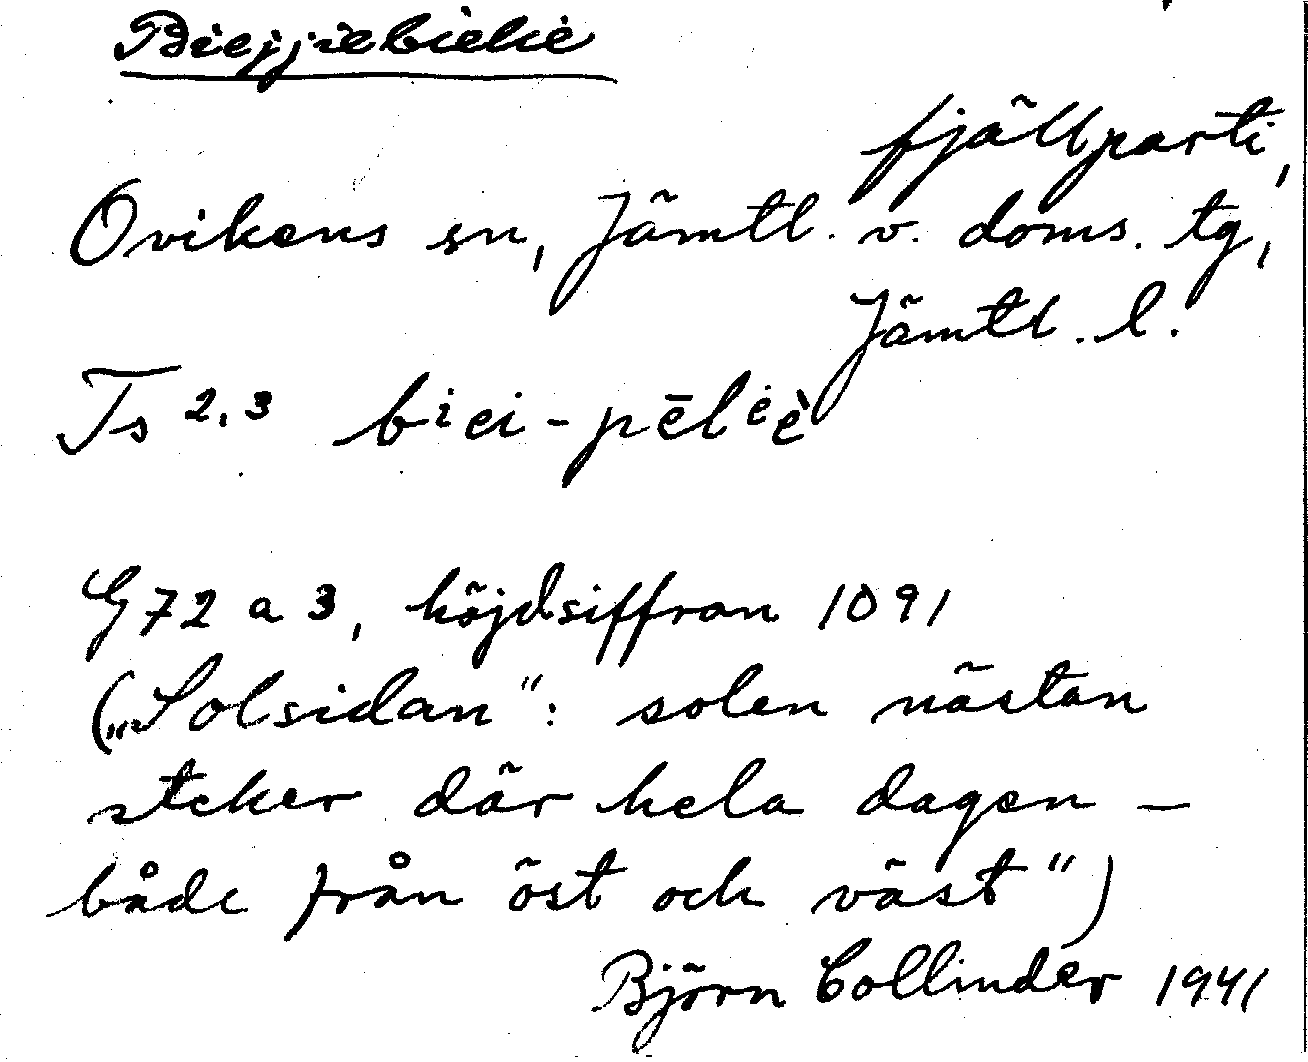 Biejjiebielie
fjällparti,
Ovikens sn, Jämtl. v. doms. tg,
Jämtl. l.
Ts 2,3 bⁱei-pēlⁱeè
G 72 a 3, höjdsiffran 1091
(„Solsidan": solen nästan
steker där hela dagen –
både från öst och väst")
Björn Collinder 1941